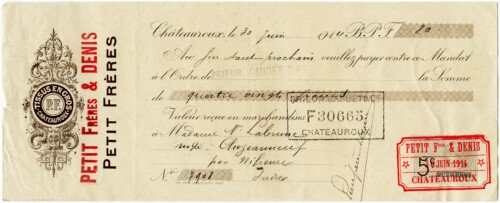 TISSUS EN GROS
P.F
CHATEAUROUX
PETIT FRÈRES & DENIS
PETIT FRÈRES
Châteauroux, le 30 Juin 1914 B.P.F. 80
Au fin août prochain veuillez payer contre ce Mandat
à l'Ordre de la Somme
de quatre vingt francs
Valeur reçue en marchandises
F30665
CHATEAUROUX
à Madame Ve
par
No 7908 Indre
PETIT Fres & DENIS
5c JUIN 1914
CHATEAUROUX